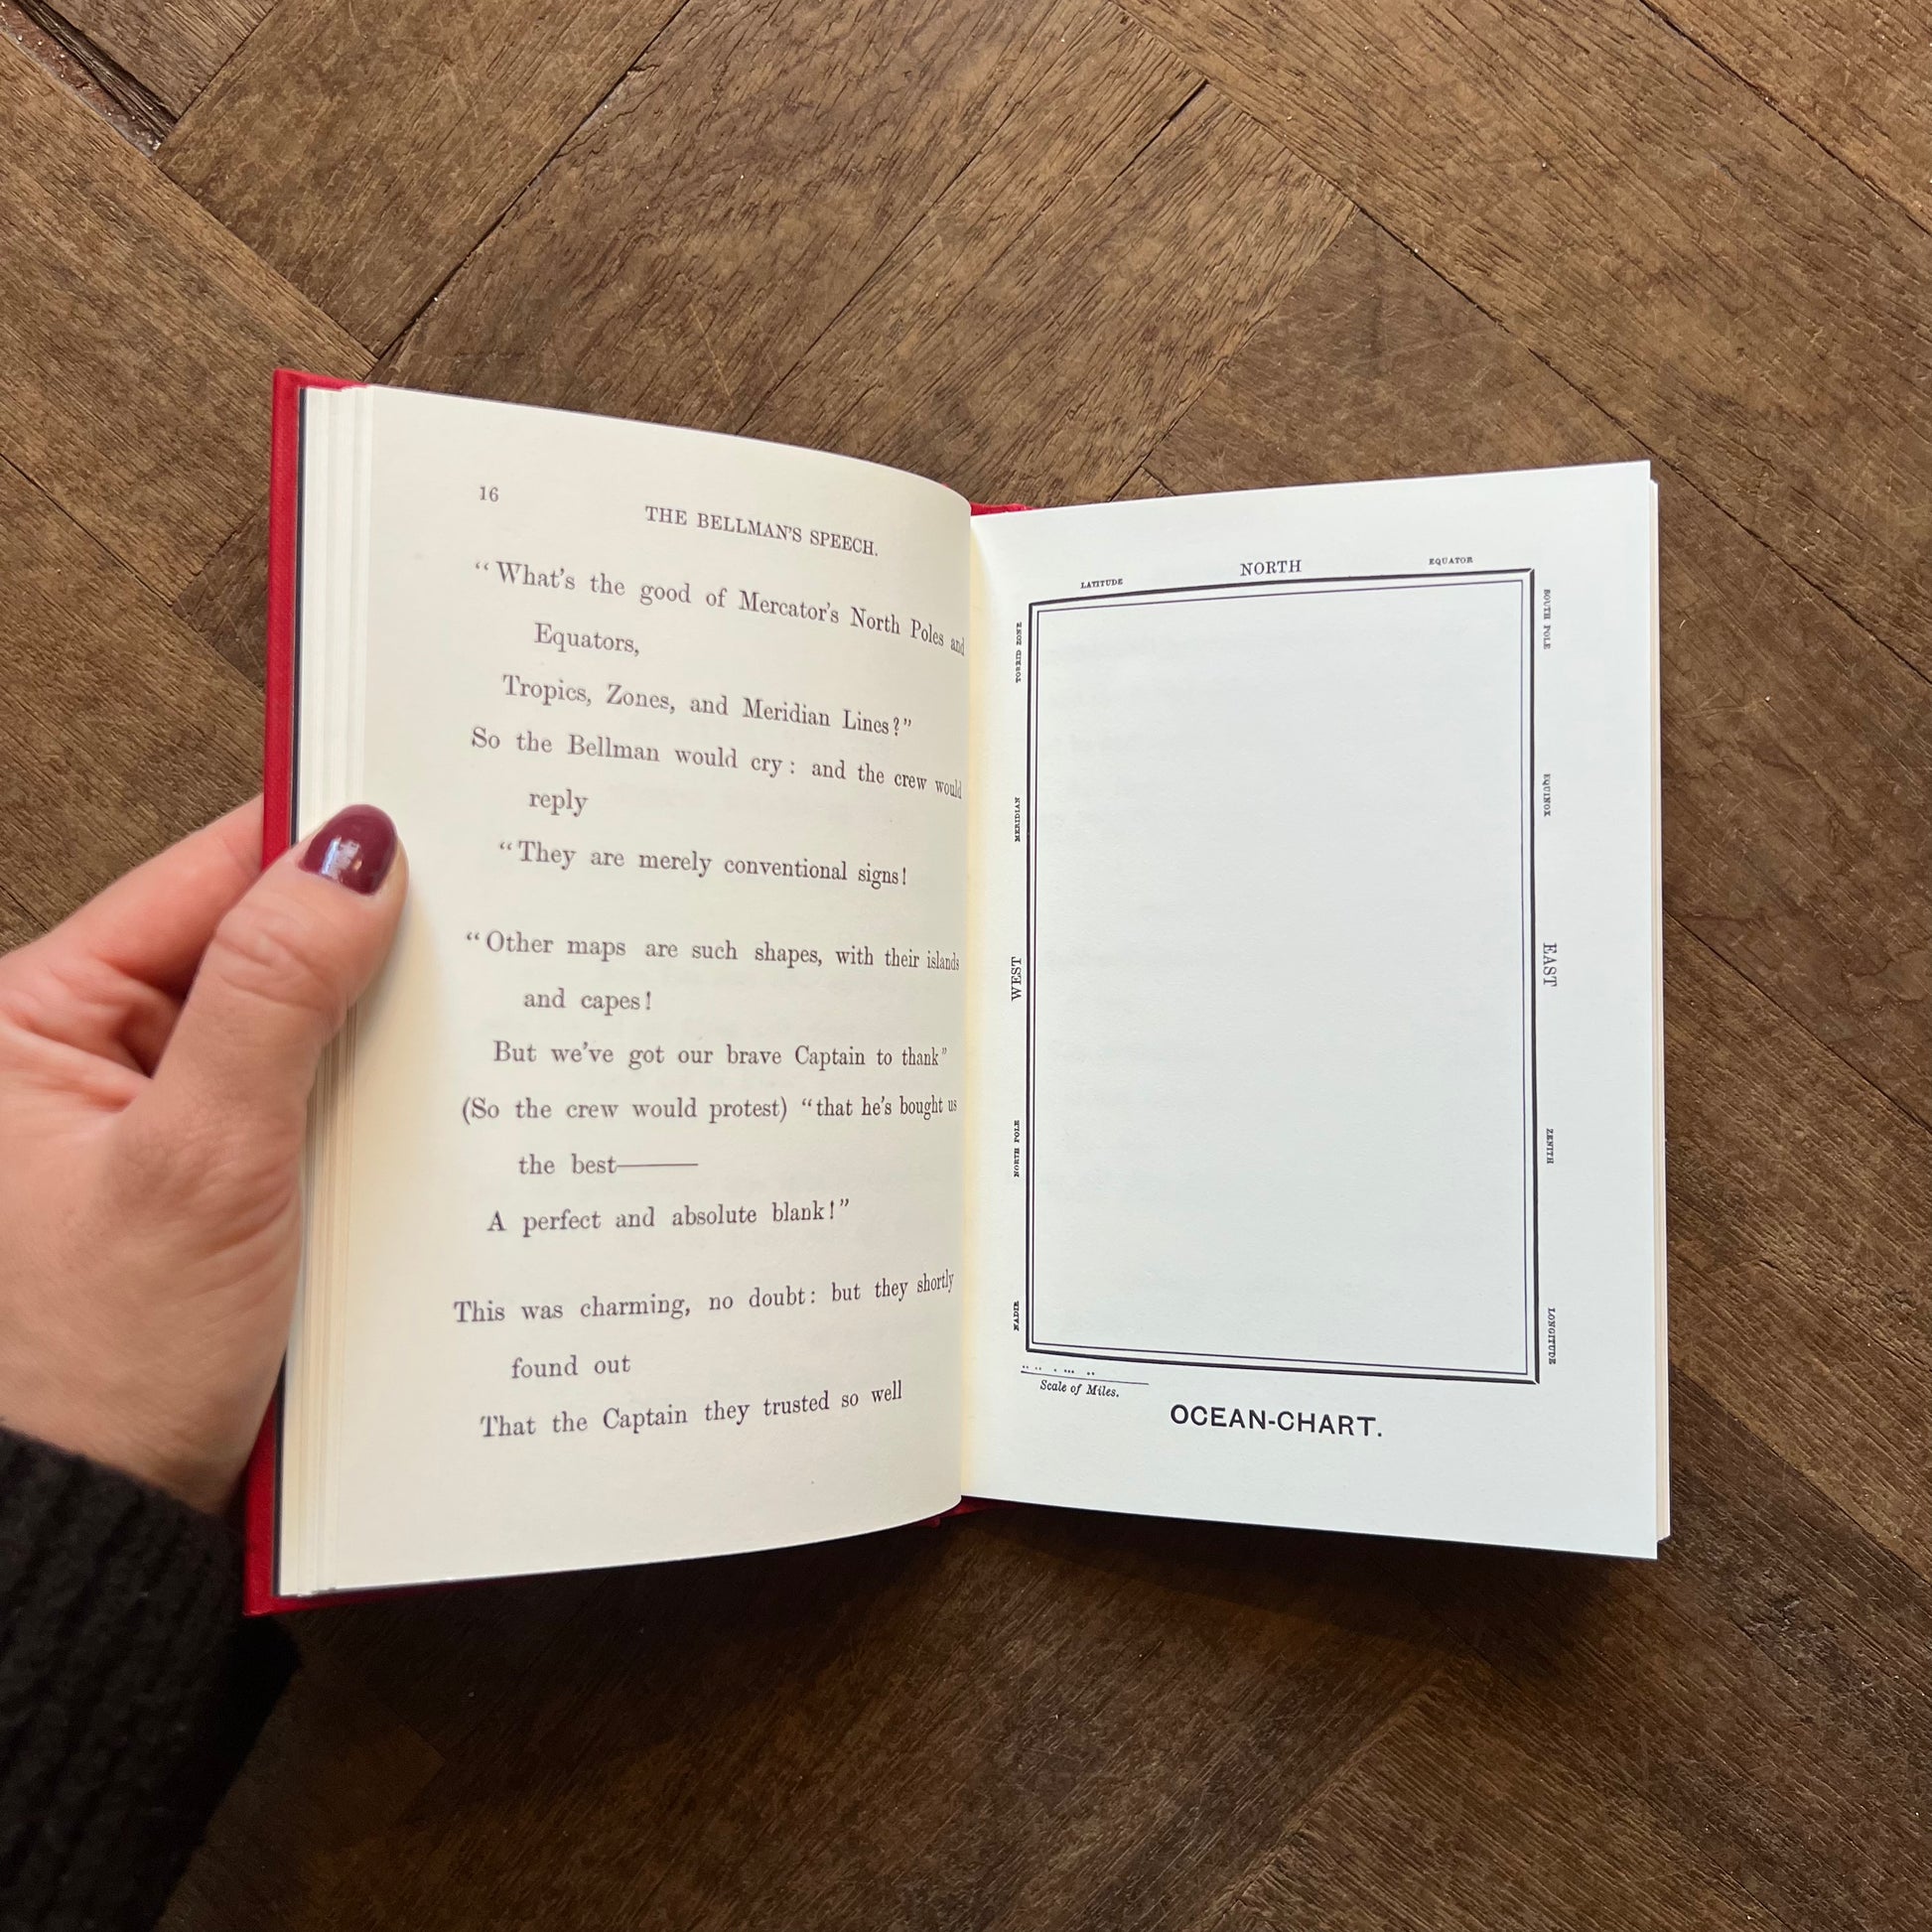 16
THE BELLMAN'S SPEECH.
“What's the good of Mercator's North Poles and
Equators,
Tropics, Zones, and Meridian Lines?”
So the Bellman would cry: and the crew would
reply
“They are merely conventional signs!
“Other maps are such shapes, with their islands
and capes!
But we've got our brave Captain to thank”
(So the crew would protest) “that he's bought us
the best———
A perfect and absolute blank!”
This was charming, no doubt: but they shortly
found out
That the Captain they trusted so well
LATITUDE
NORTH
EQUATOR
TORRID ZONE
MERIDIAN
WEST
NORTH POLE
NADIR
SOUTH POLE
EQUINOX
EAST
ZENITH
LONGITUDE
Scale of Miles.
OCEAN-CHART.